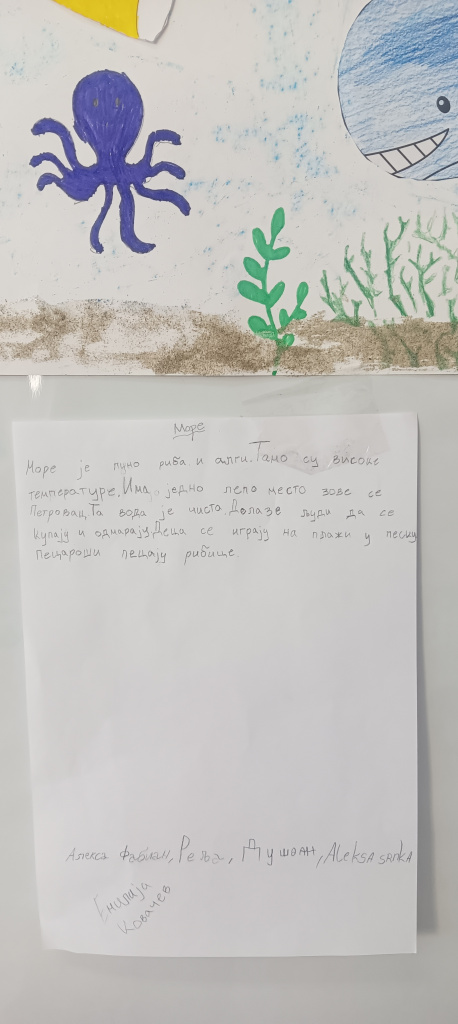 Море
Море је пуно риба и алги. Тамо су високе
температуре. Има једно лепо место зове се
Петровац. Та вода је чиста. Долазе људи да се
купају и одмарају. Деца се играју на плажи у песку
пецароши пецају рибице.
Алекса Фабиан, Реља, Душан, Aleksa srnka
Емилија
Ковачев